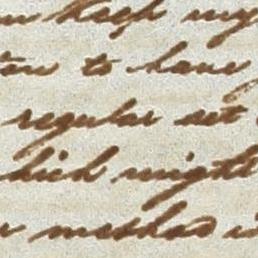 keep my
to have
regular set
which might
method